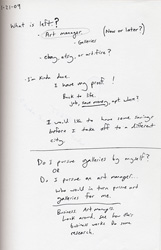 1-21-09
What is left?
- Art manager (Now or later?)
- Galleries
- ebay, etsy, or artfire?
- I'm kinda done.
I have my proof!
Back to life.
job, save money, apt alone?
I would like to have some savings
before I take off to a different
city.
Do I pursue galleries by myself?
OR
Do I pursue an art manager...
who would in turn pursue art
galleries for me.
Business Art manager
look around, see how this
business works do some
research.